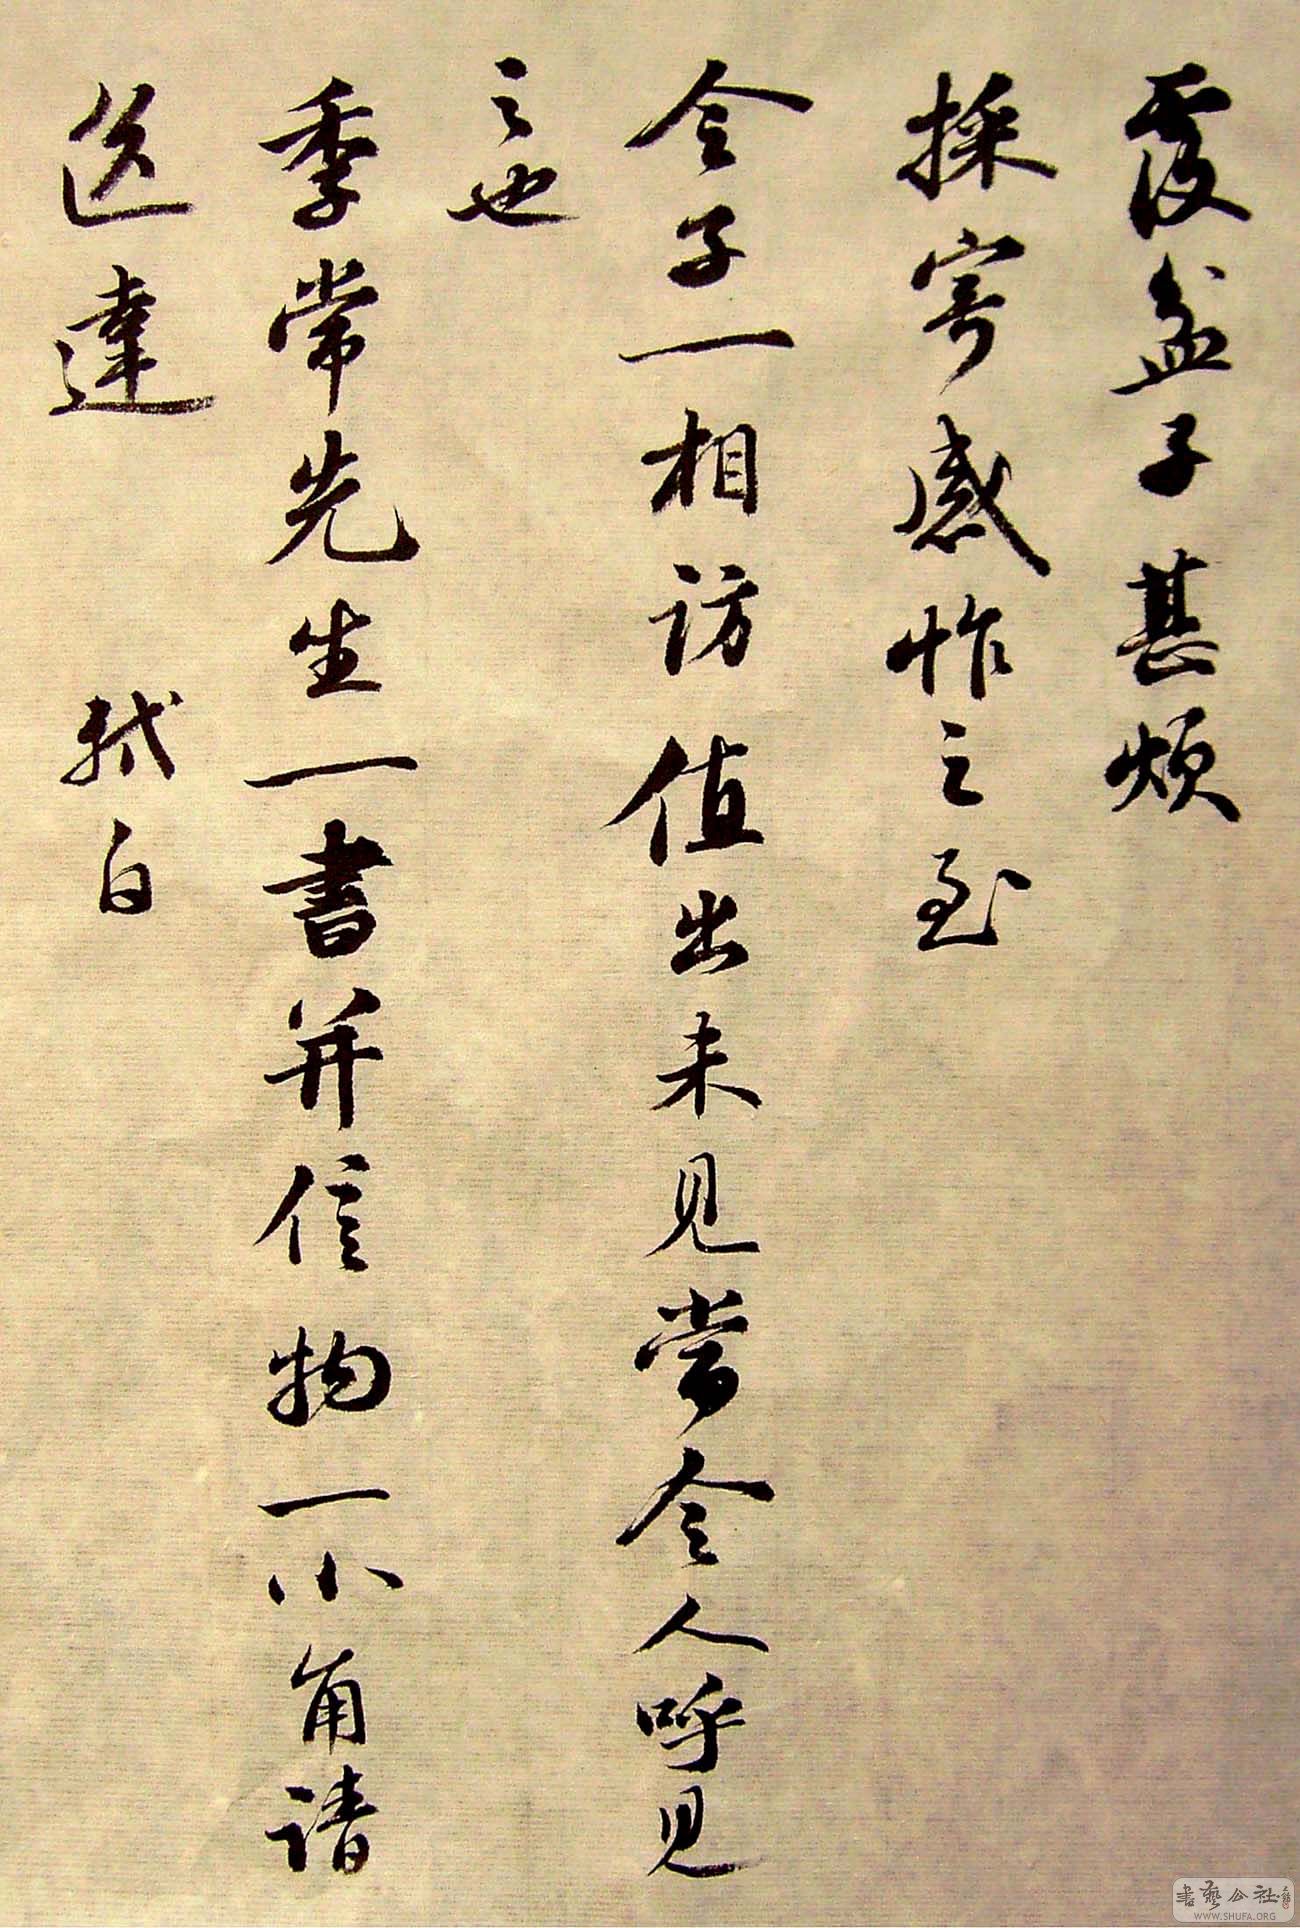 覆盆子甚煩
採寄感怍之至
令子一相訪值出未見當令人呼見
之也
季常先生一書并信物一小角請
送達 軾白
書藝公社
WWW.SHUFA.ORG